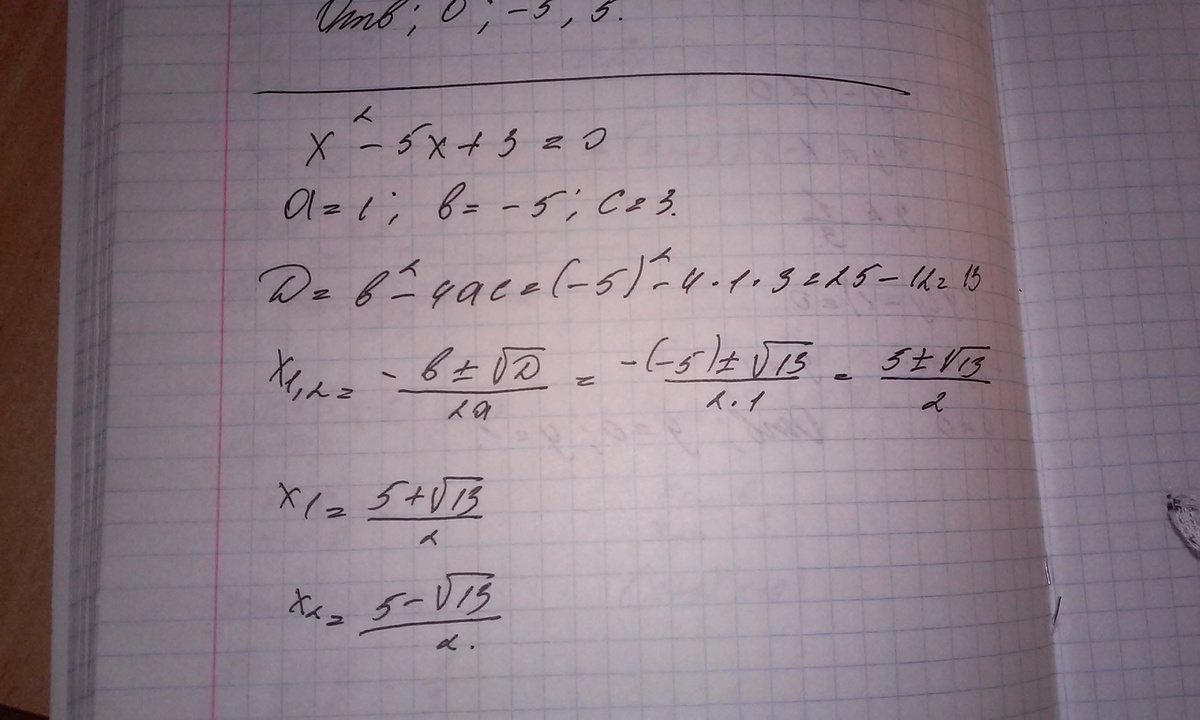 Отв; 0; -5, 5.
x² - 5x + 3 = 0
a = 1; b = -5; c = 3.
D = b² - 4ac = (-5)² - 4·1·3 = 25 - 12 = 13
x1,2 = - b ± √D / 2a = -(-5) ± √13 / 2·1 = 5 ± √13 / 2
x1 = 5 + √13 / 2
x2 = 5 - √13 / 2.